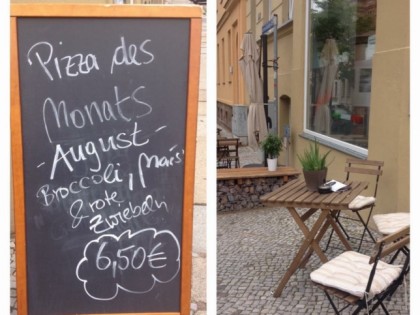 Pizza des
Monats
- August -
Broccoli, Mais
& rote
Zwiebeln
6,50€